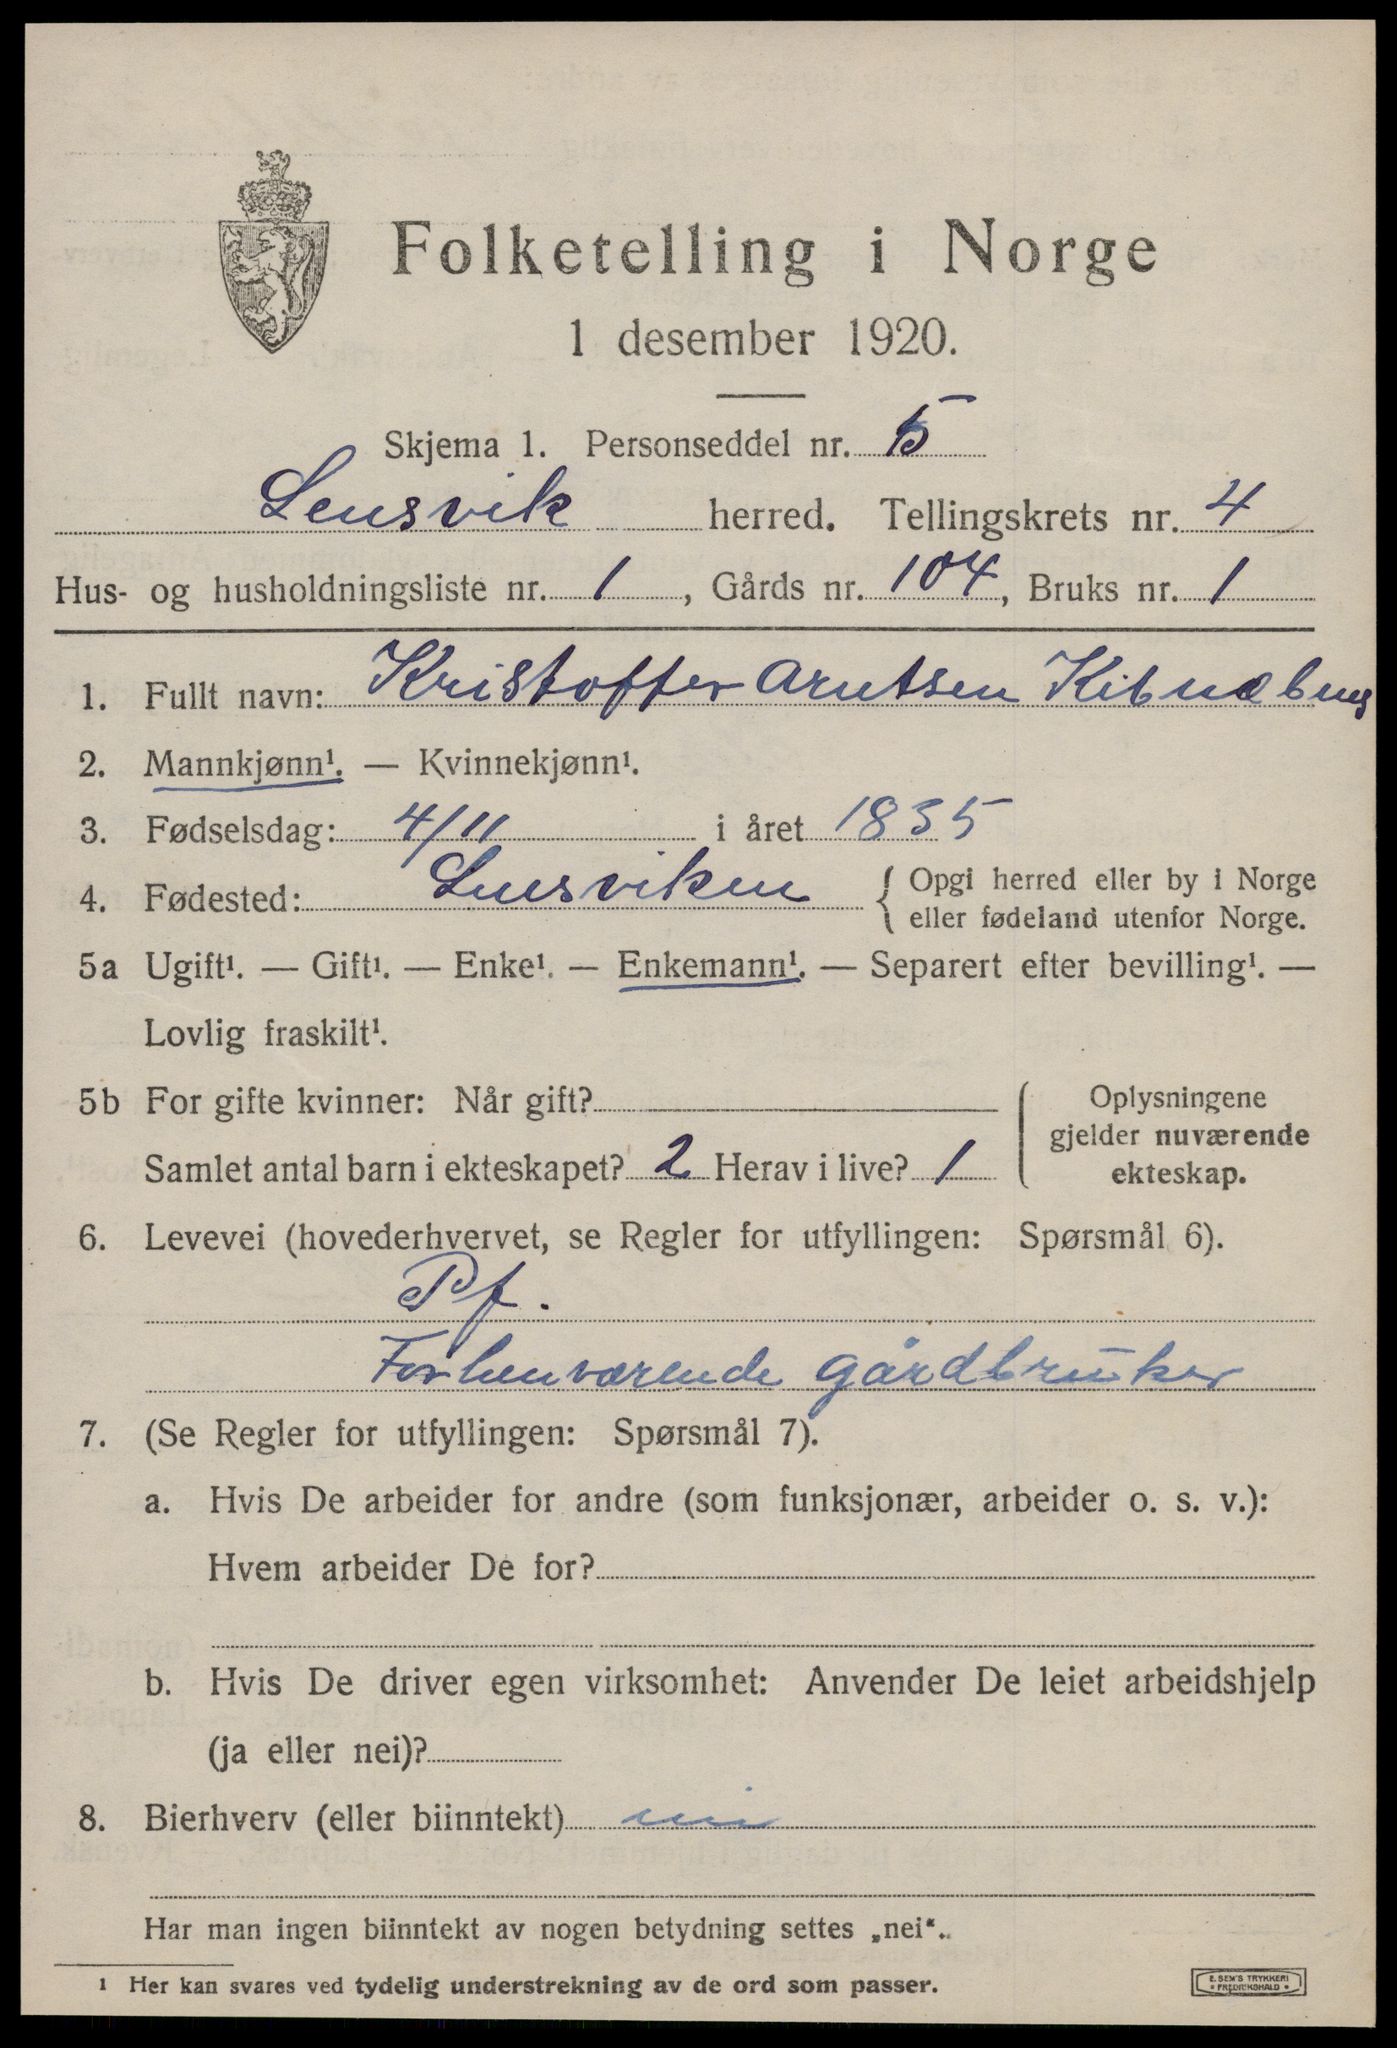 Folketelling i Norge
1 desember 1920.
Skjema 1. Personseddel nr. 5
Lensvik herred. Tellingskrets nr. 4
Hus- og husholdningsliste nr. 1, Gårds nr. 104, Bruks nr. 1
1. Fullt navn: Kristoffer Arntsen Kibnæbnes
2. Mannkjønn¹. — Kvinnekjønn¹.
3. Fødselsdag: 4/11 i året 1835
4. Fødested: Lensviken { Opgi herred eller by i Norge
eller fødeland utenfor Norge.
5a Ugift¹. — Gift¹. — Enke¹. — Enkemann¹. — Separert efter bevilling¹. —
Lovlig fraskilt¹.
5b For gifte kvinner: Når gift?
Samlet antal barn i ekteskapet? 2 Herav i live? 1
Oplysningene
gjelder nuværende
ekteskap.
6. Levevei (hovederhvervet, se Regler for utfyllingen: Spørsmål 6).
Pf.
Forhenværende gårdbruker
7. (Se Regler for utfyllingen: Spørsmål 7).
a. Hvis De arbeider for andre (som funksjonær, arbeider o. s. v.):
Hvem arbeider De for?
b. Hvis De driver egen virksomhet: Anvender De leiet arbeidshjelp
(ja eller nei)?
8. Bierhverv (eller biinntekt) nei
Har man ingen biinntekt av nogen betydning settes „nei“.
¹ Her kan svares ved tydelig understrekning av de ord som passer.
E. SEM'S TRYKKERI
FREDRIKSHALD